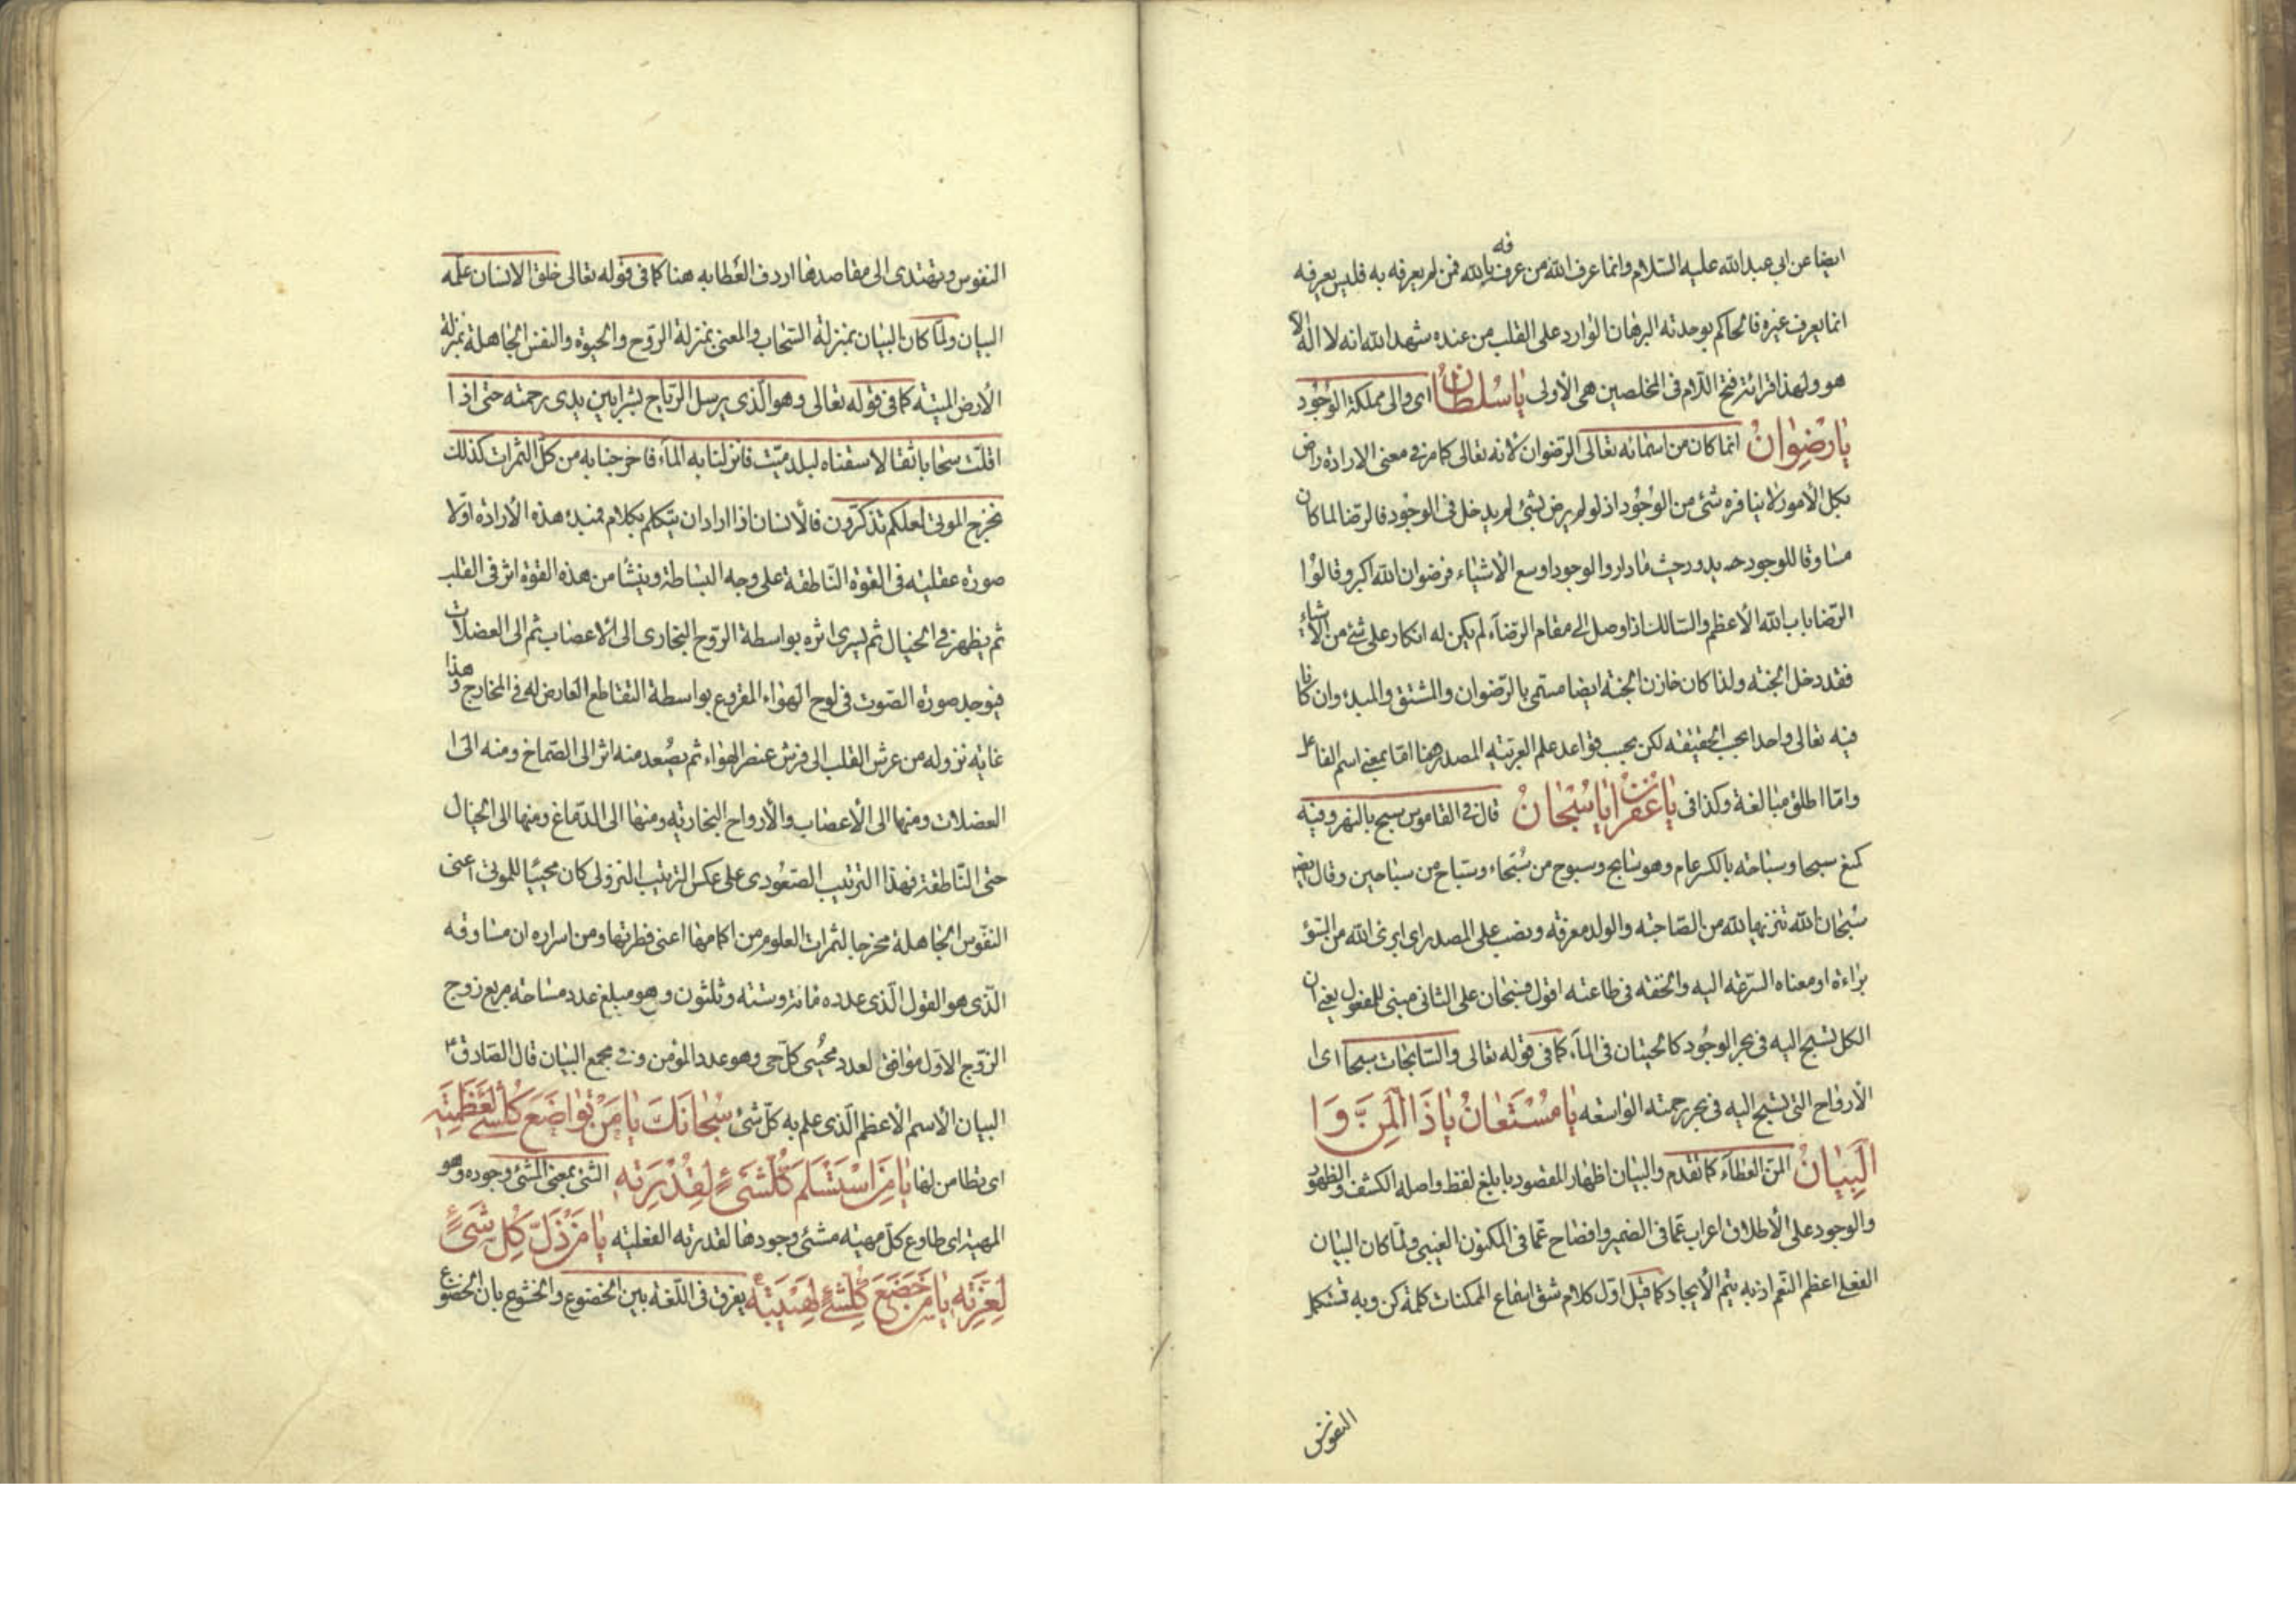 ايضا عن ابى عبد الله عليه السلام وانما عرف الله من عرفه بالله فمن لم يعرفه به فليس يعرفه
انما يعرف غيره فالحاكم بوحدته البرهان الوارد على القلب من عنده شهد الله انه لا اله الا
هو ولهذا قرائة فتح اللام فى المخلصين هى الأولى يا سلطان اى والى مملكة الوجود
يا رضوان انما كان من اسمائه تعالى الرضوان لانه تعالى كما مر فى معنى الارادة راض
بكل الأمور لا ينافره شئ من الوجود اذ لو لم يرض بشئ لم يدخل فى الوجود فالرضا لما كان
مساوقا للوجود يدور حيث ما دار والوجود اوسع الأشياء فرضوان الله اكبر وقالوا
الرضا باب الله الأعظم والسالك اذا وصل الى مقام الرضاء لم يكن له انكار على شئ من الأشياء
فقد دخل الجنة ولذا كان خازن الجنة ايضا مسمى بالرضوان والمشتق والمبدء وان كانا
فيه تعالى واحدا بحسب الحقيقة لكن بحسب قواعد علم العربية المصدر هنا اما بمعنى اسم الفاعل
واما اطلق مبالغة وكذا فى يا غفران يا سبحان قال فى القاموس سبح بالنهر وفيه
كمنع سبحا وسباحة بالكسر عام وهو سابح وسبوح من سبحاء وسباح من سباحين وقال ايضا
سبحان الله تنزيها لله من الصاحبة والولد معرفة ونصب على المصدر اى ابرئ الله من السوء
براءة او معناه السرعة اليه والخفة فى طاعته اقول فسبحان على الثانى مبنى للمفعول يعنى ان
الكل تسبح اليه فى بحر الوجود كالحيتان فى الماء كما فى قوله تعالى والسابحات سبحا اى
الأرواح التى تسبح اليه فى بحر رحمته الواسعة يا مستعان يا ذا المن وا
البيان المن العطاء كما تقدم والبيان اظهار المقصود بابلغ لفظ واصله الكشف والظهور
والوجود على الأطلاق اعراب عما فى الضمير وافضاح عما فى المكنون الغيبى ولما كان البيان
الفعلى اعظم النعم اذ به يتم الأيجاد كما قيل اول كلام شق اسماع الممكنات كلمة كن وبه تستكمل
النفوس
النفوس وتهتدى الى مقاصدها اردف العطا به هنا كما فى قوله تعالى خلق الانسان علمه
البيان ولما كان البيان بمنزلة السحاب والمعنى بمنزلة الروح والحيوة والنفس الجاهلة بمنزلة
الأرض الميتة كما فى قوله تعالى وهو الذى يرسل الرياح بشرا بين يدى رحمته حتى اذا
اقلت سحابا ثقالا سقناه لبلد ميت فانزلنا به الماء فاخرجنا به من كل الثمرات كذلك
نخرج الموتى لعلكم تذكرون فالأنسان اذا اراد ان يتكلم بكلام فمبدء هذه الأرادة اولا
صورة عقلية فى القوة الناطقة على وجه البساطة وينشأ من هذه القوة اثر فى القلب
ثم يظهر فى الخيال ثم يسرى اثره بواسطة الروح البخارى الى الأعصاب ثم الى العضلات
فيوجد صورة الصوت فى لوح الهواء المقروع بواسطة التقاطع العارض له فى المخارج وهذا
غاية نزوله من عرش القلب الى فرش عنصر الهواء ثم يصعد منه اثر الى الصماخ ومنه الى
العضلات ومنها الى الأعصاب والأرواح البخارية ومنها الى الدماغ ومنها الى الخيال
حتى الناطقة فهذا الترتيب الصعودى على عكس الترتيب النزولى كان محييا للموتى اعنى
النفوس الجاهلة مخرجا لثمرات العلوم من اكمامها اعنى فطرتها ومن اسراره ان مساوقه
الذى هو القول الذى عدده مائة وستة وثلثون وهو مبلغ عدد مساحة مربع زوج
الزوج الأول موافق لعدد محيى كل حى وهو عدد المؤمن وفى مجمع البيان قال الصادق ع
البيان الأسم الأعظم الذى علم به كل شئ سبحانك يا من تواضع كلشئ لعظمته
اى تطامن لها يا من استسلم كلشئ لقدرته الشئ بمعنى المشئ وجوده وهو
المهية اى طاوع كل مهية مشئ وجودها لقدرته الفعلية يا من ذل كل شئ
لعزته يا من خضع كلشئ لهيبته يفرق فى اللغة بين الخضوع والخشوع بان الخضوع